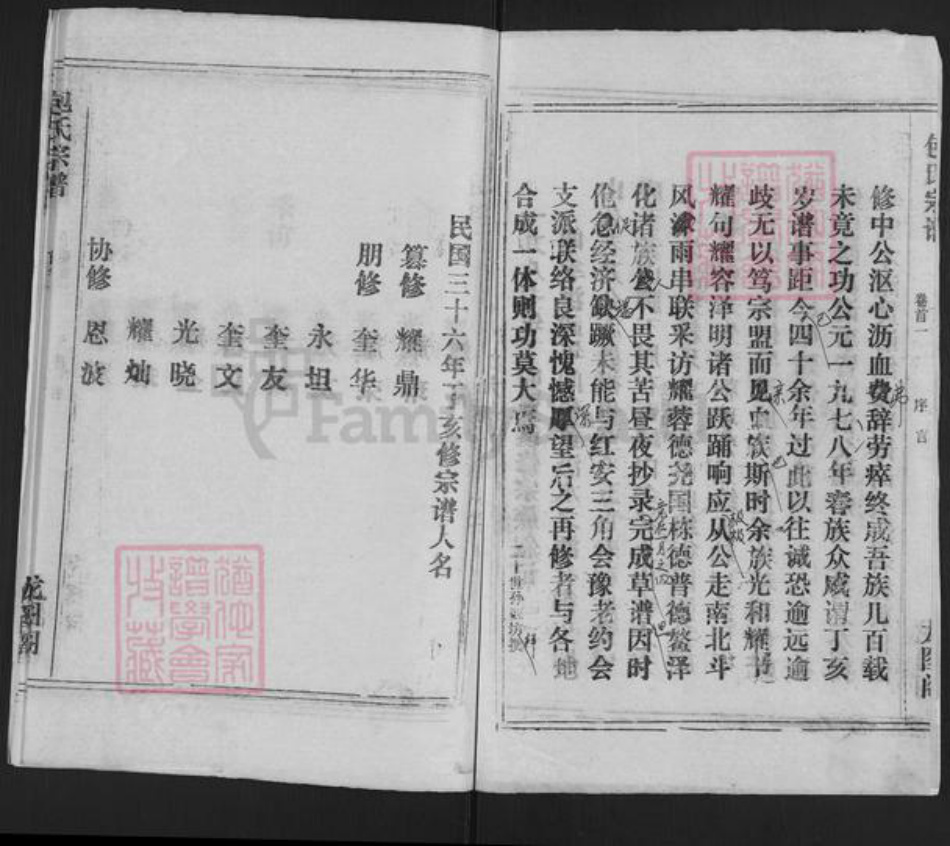 包氏宗谱
卷首一
序言
修中公沤心沥血费辞劳瘁终成吾族几百载
未竟之功公元一九七八年春族众咸谓丁亥
岁谱事距今四十余年过此以往诚恐逾远逾
歧无以笃宗盟而见血族斯时余族光和耀
耀句耀容泽明诸公跃踊响应从公走南北斗
风沐雨串联采访耀蓉德尧国栋德普德鳌泽
化诸族不畏其苦昼夜抄录完成草谱因时
伧急经济缺蹶未能与红安三角会豫老约会
支派联络良深愧憾厚望后之再修者与各地
合成一体则功莫大焉
二十世孙
民国三十六年丁亥修宗谱人名
篡修 耀鼎
朋修 奎华
永坦
奎友
奎文
光晓
耀灿
协修 恩波
包氏宗谱
龙图阁